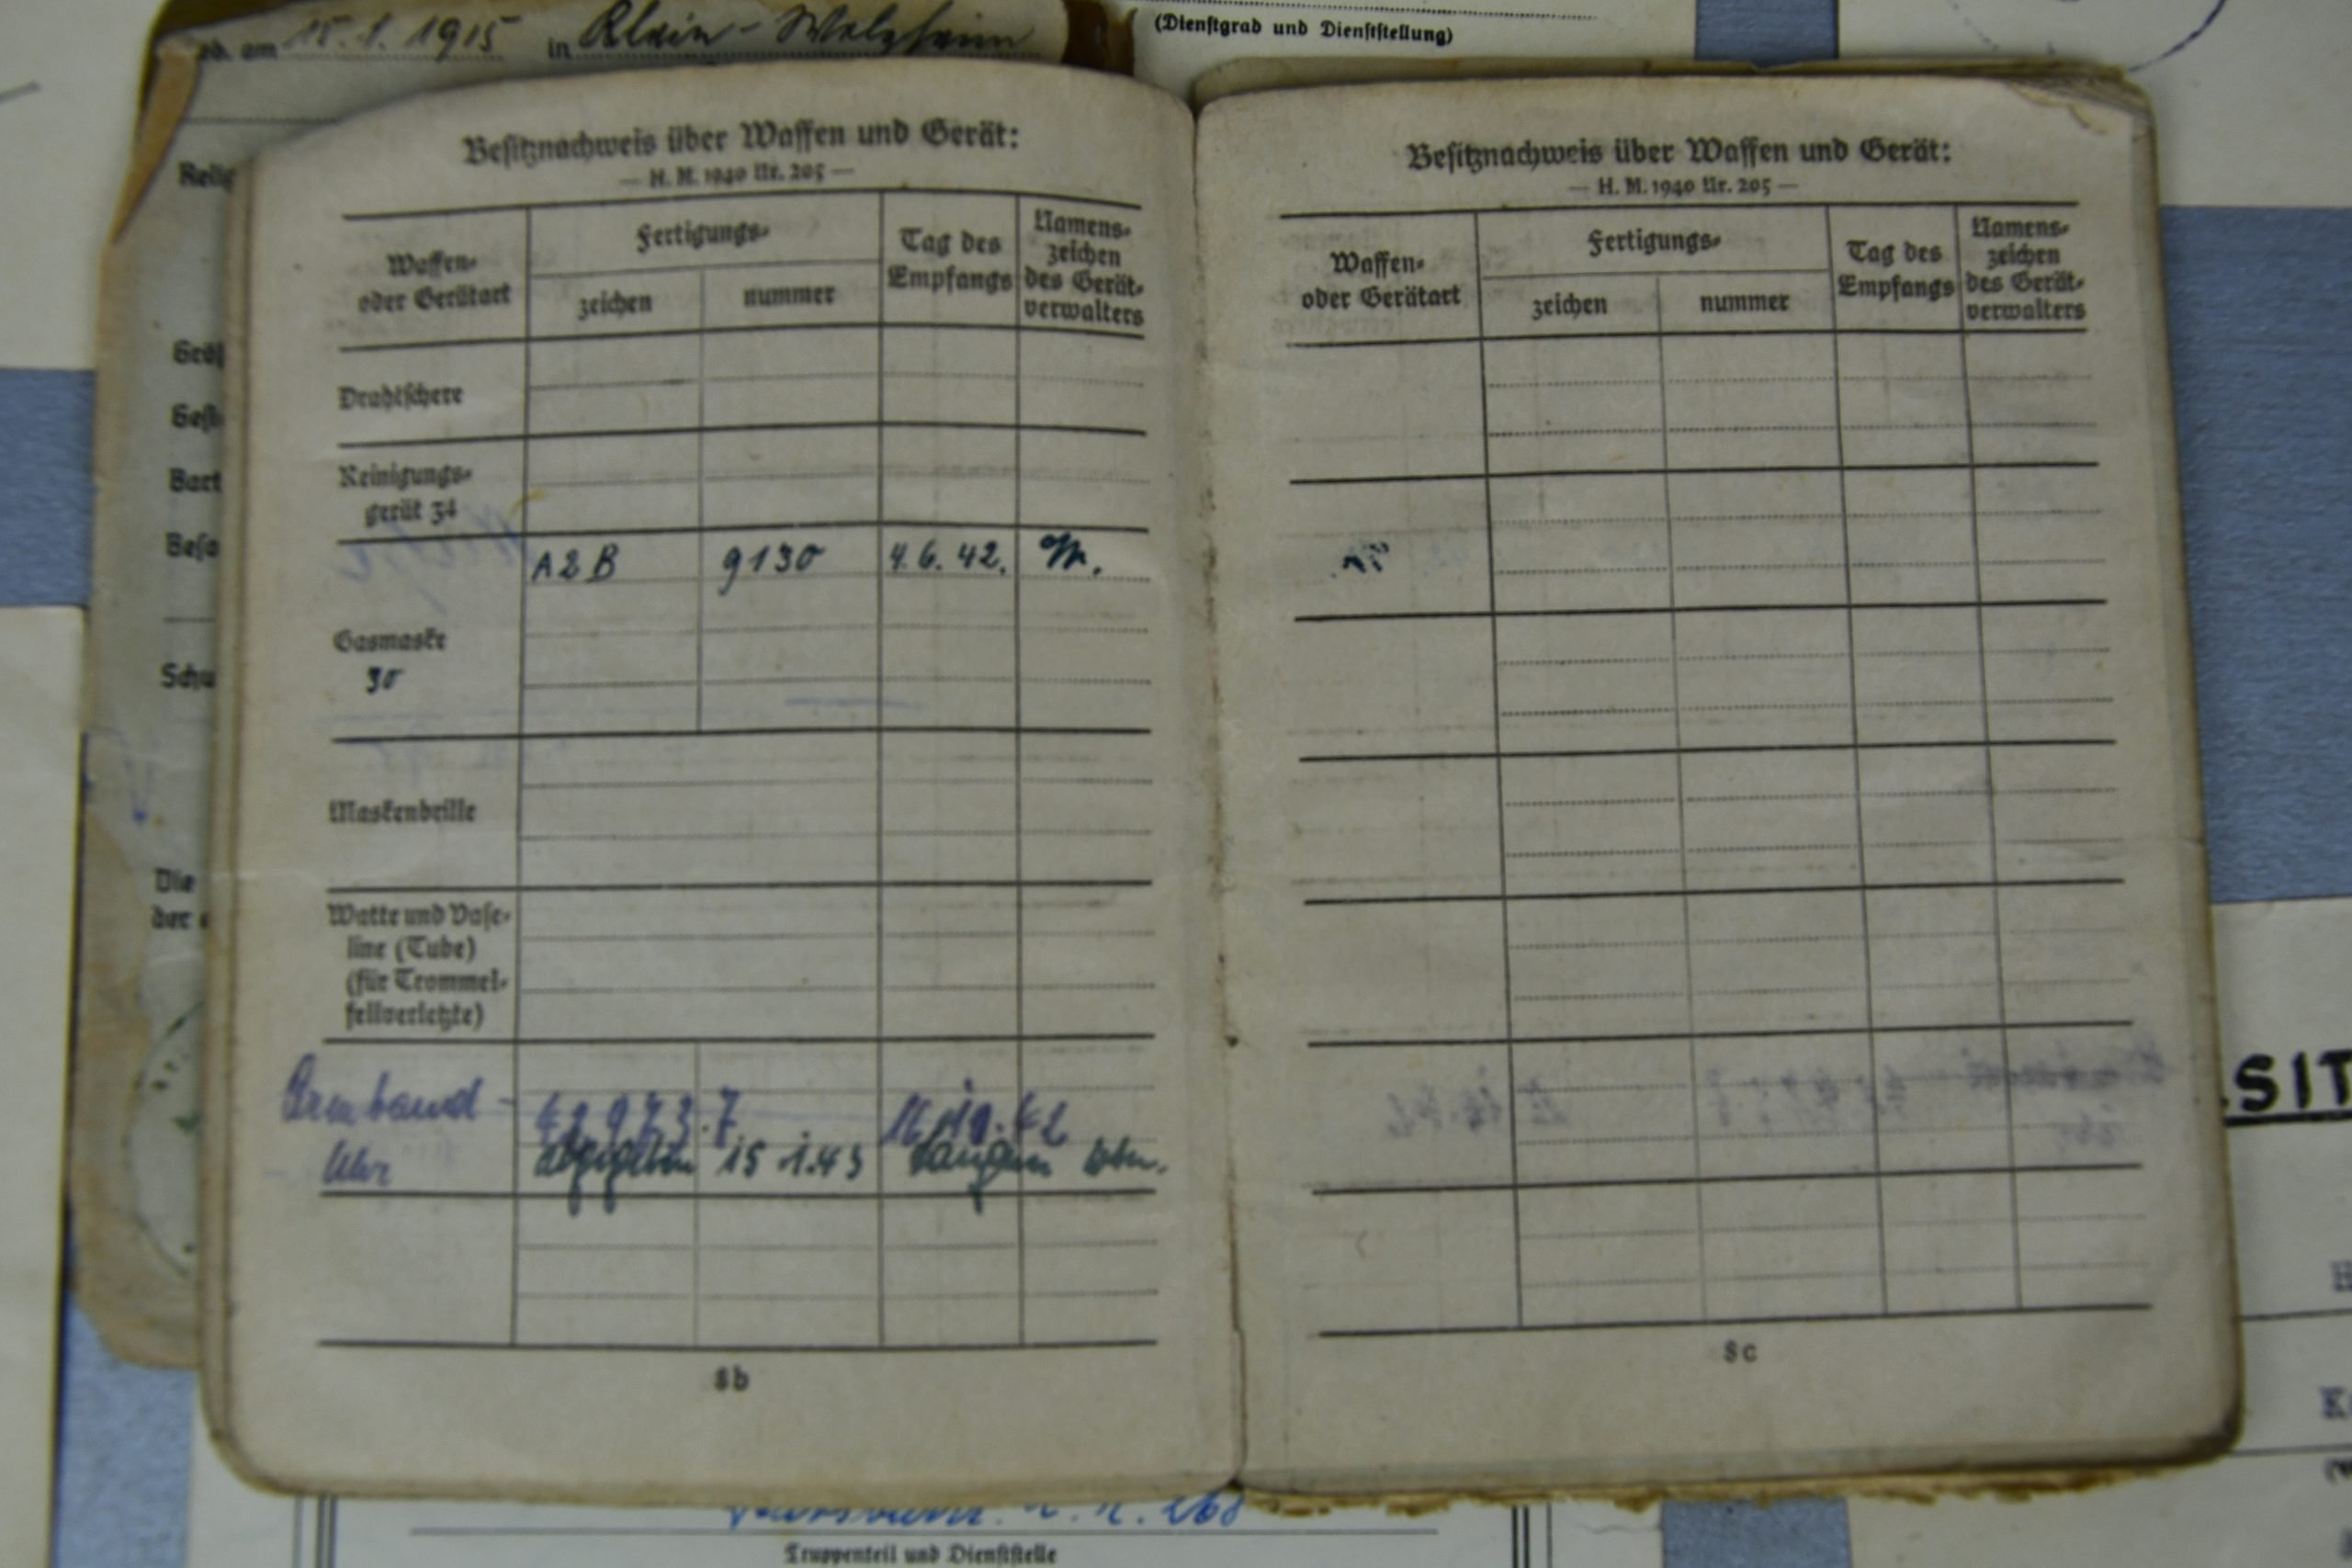 am 15.1.1915 in Klein-Welzheim
(Dienstgrad und Dienststellung)
Besitznachweis über Waffen und Gerät:
— H. M. 1940 Nr. 205 —
Waffen-
oder Gerätart
Fertigungs-
zeichen
nummer
Tag des
Empfangs
Namens-
zeichen
des Gerät-
verwalters
Drahtschere
Reinigungs-
gerät 34
A2B 9130 4.6.42. M.
Gasmaske
30
Maskenbrille
Watte und Vase-
line (Tube)
(für Trommel-
fellverletzte)
Armband-
Uhr
abgegeben 15.1.43
8b
Besitznachweis über Waffen und Gerät:
— H. M. 1940 Nr. 205 —
Waffen-
oder Gerätart
Fertigungs-
zeichen
nummer
Tag des
Empfangs
Namens-
zeichen
des Gerät-
verwalters
8c
Relig
Bart
Die
der
SIT
Truppenteil und Dienststelle